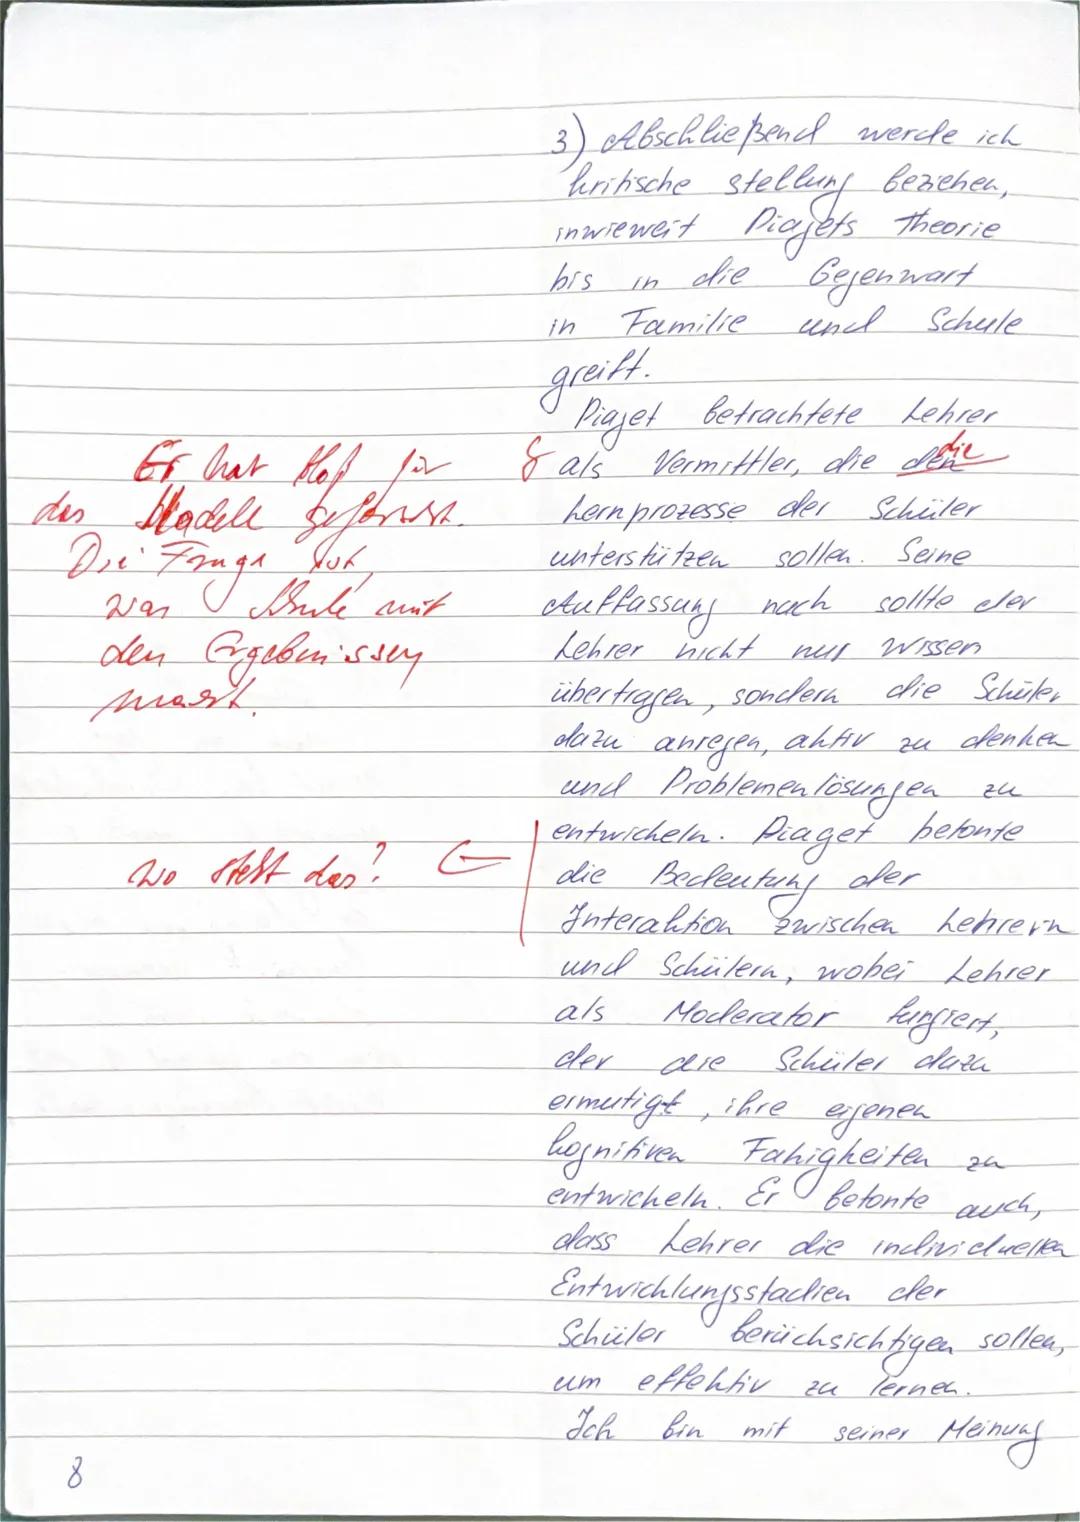 3) Abschließend werde ich
kritische stellung beziehen,
inwieweit Piajets Theorie
bis in die Gegenwart
in Familie und Schule
greift.
Piajet betrachtete Lehrer
als Vermittler, die den die
Lernprozesse der Schüler
unterstützen sollen. Seine
Auffassung nach sollte der
Lehrer nicht nur Wissen
übertragen, sondern die Schüler
dazu anregen, aktiv zu denken
und Problemenlösungen zu
entwickeln. Piaget betonte
die Bedeutung der
Interaktion zwischen Lehrern
und Schülern, wobei Lehrer
als Moderator fungiert,
der die Schüler dazu
ermutigt, ihre eigenen
kognitiven Fähigkeiten zu
entwickeln. Er betonte auch,
dass Lehrer die individuellen
Entwicklungsstadien der
Schüler berücksichtigen sollen,
um effektiv zu lernen.
Ich bin mit seiner Meinung
Er hat bloß für
das Modell geforscht.
Die Frage ist,
was Schule mit
den Ergebnissen
macht.
Wo steht das?
8